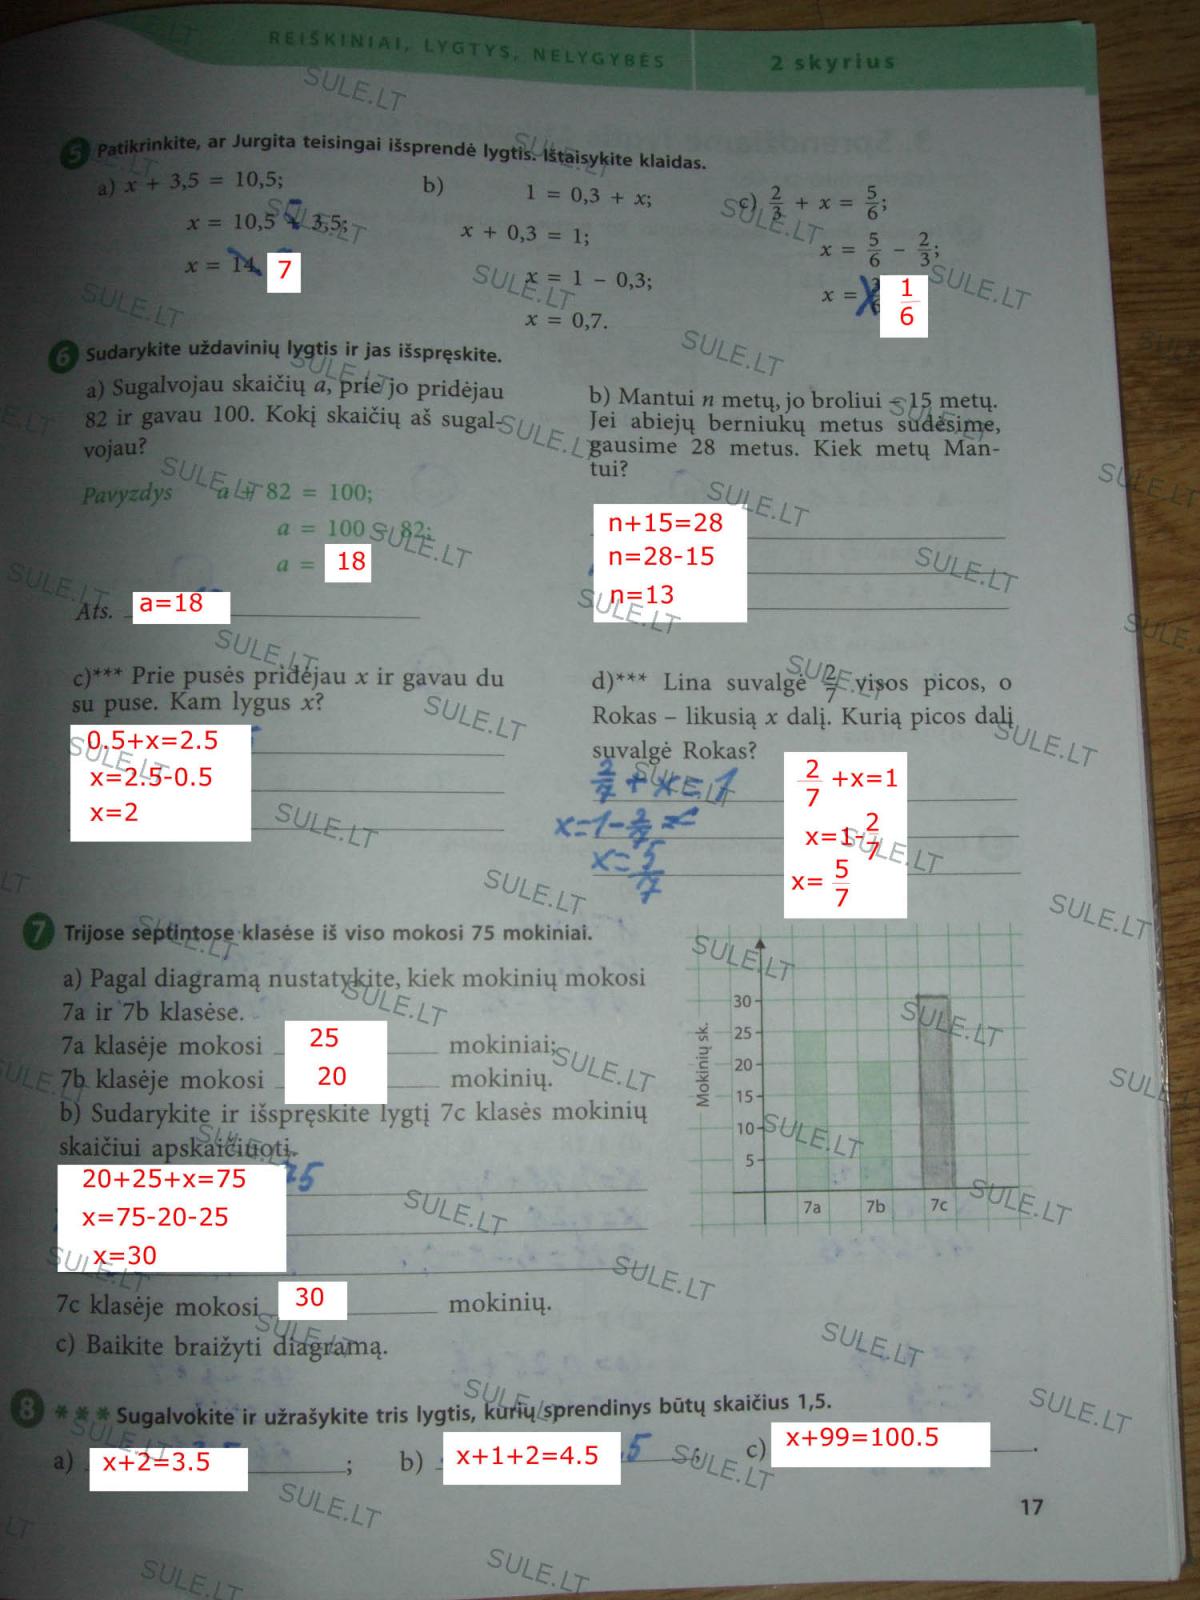 REIŠKINIAI, LYGTYS, NELYGYBĖS
2 skyrius
5 Patikrinkite, ar Jurgita teisingai išsprendė lygtis. Ištaisykite klaidas.
a) x + 3,5 = 10,5;
x = 10,5 + 3,5;
x = 14. 7
b) 1 = 0,3 + x;
x + 0,3 = 1;
x = 1 – 0,3;
x = 0,7.
c) 2/3 + x = 5/6;
x = 5/6 – 2/3;
x = 3/6 1/6
6 Sudarykite uždavinių lygtis ir jas išspręskite.
a) Sugalvojau skaičių a, prie jo pridėjau
82 ir gavau 100. Kokį skaičių aš sugal-
vojau?
Pavyzdys a + 82 = 100;
a = 100 – 82;
a = 18
Ats. a=18
b) Mantui n metų, jo broliui – 15 metų.
Jei abiejų berniukų metus sudėsime,
gausime 28 metus. Kiek metų Man-
tui?
n+15=28
n=28-15
n=13
c)*** Prie pusės pridėjau x ir gavau du
su puse. Kam lygus x?
0.5+x=2.5
x=2.5-0.5
x=2
d)*** Lina suvalgė 2/7 visos picos, o
Rokas – likusią x dalį. Kurią picos dalį
suvalgė Rokas?
2/7 + x = 1
x=1-2/7=
x=5/7
2/7 +x=1
x=1-2/7
x= 5/7
7 Trijose septintose klasėse iš viso mokosi 75 mokiniai.
a) Pagal diagramą nustatykite, kiek mokinių mokosi
7a ir 7b klasėse.
7a klasėje mokosi 25 mokiniai;
7b klasėje mokosi 20 mokinių.
b) Sudarykite ir išspręskite lygtį 7c klasės mokinių
skaičiui apskaičiuoti.
20+25+x=75
75
x=75-20-25
x=30
7c klasėje mokosi 30 mokinių.
c) Baikite braižyti diagramą.
Mokinių sk.
30
25
20
15
10
5
7a 7b 7c
8 *** Sugalvokite ir užrašykite tris lygtis, kurių sprendinys būtų skaičius 1,5.
a) x+2=3.5 ; b) x+1+2=4.5 ; c) x+99=100.5 .
17
SULE.LT